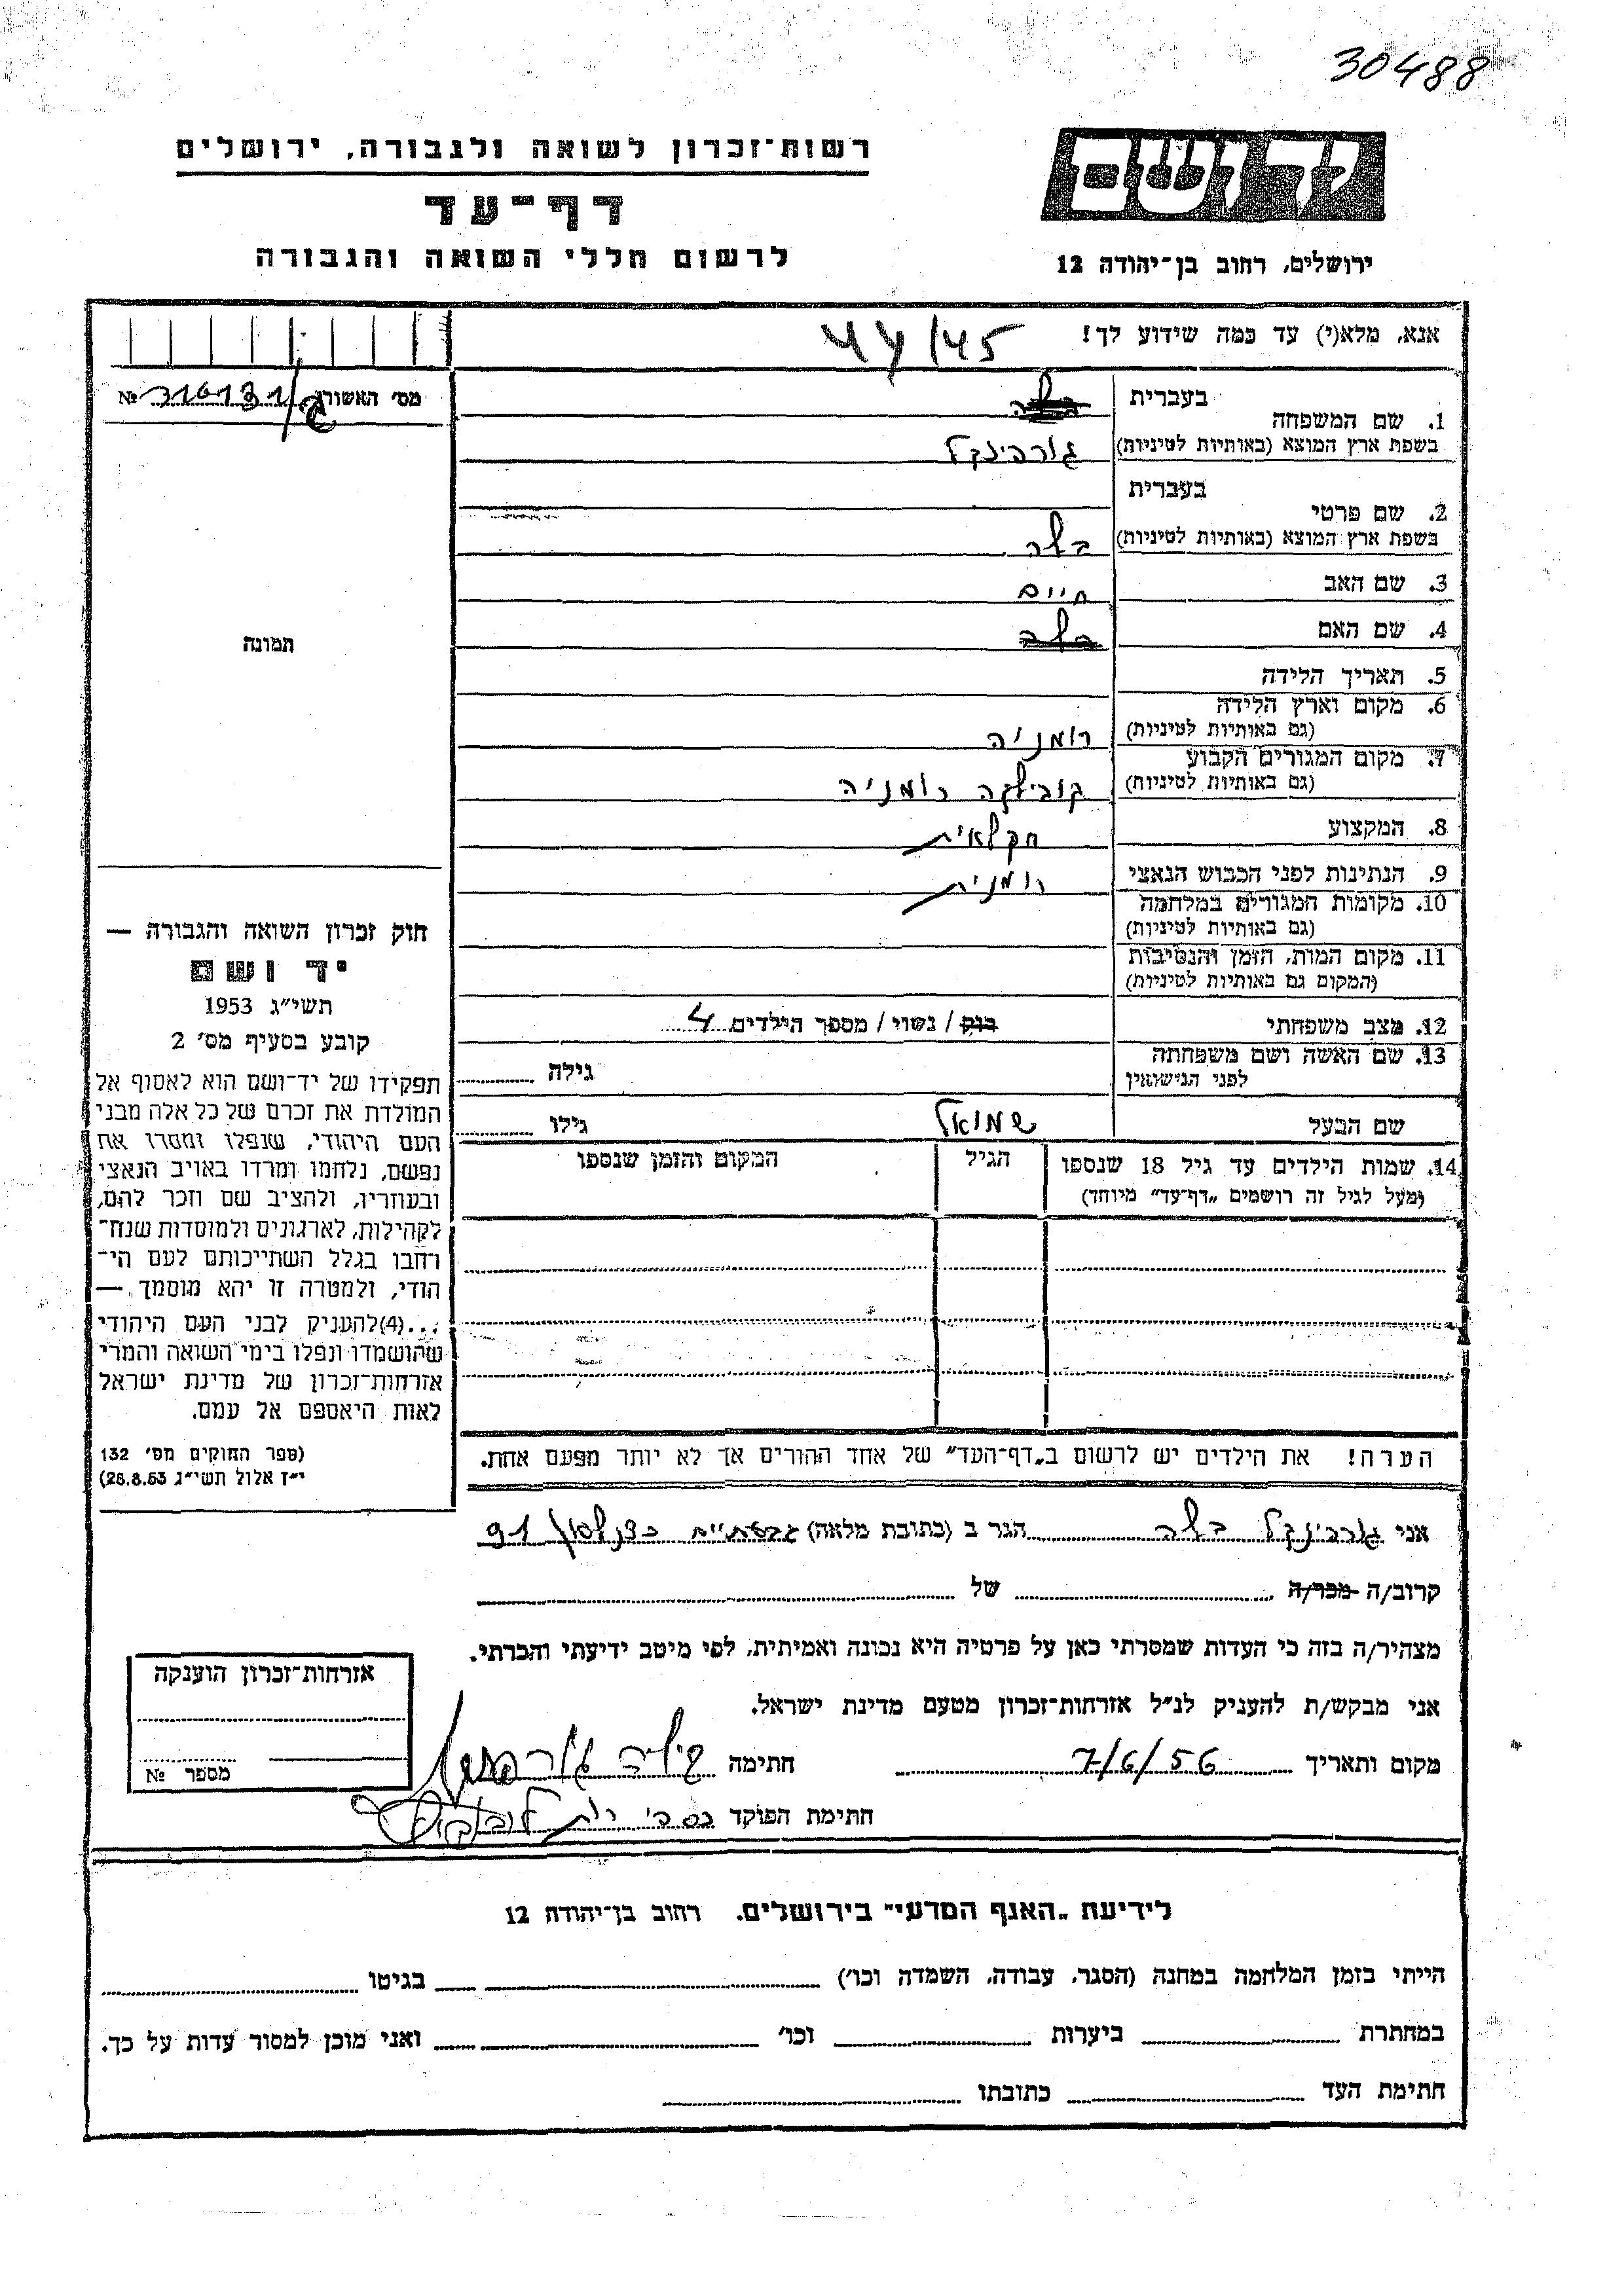 30488
יד ושם
רשות־זכרון לשואה ולגבורה, ירושלים
דף־עד
לרשום חללי השואה והגבורה
ירושלים, רחוב בן־יהודה 12
אנא, מלא(י) עד כמה שידוע לך!
44/45
מס׳ האשורה
№ 316131/
1. שם המשפחה
בעברית
בשפת ארץ המוצא (באותיות לטיניות) גורפינקל
2. שם פרטי
בעברית
בשפת ארץ המוצא (באותיות לטיניות)
3. שם האב חיים
4. שם האם
5. תאריך הלידה
6. מקום וארץ הלידה
(גם באותיות לטיניות) רומניה
7. מקום המגורים הקבוע
(גם באותיות לטיניות) קובילקה רומניה
8. המקצוע חקלאית
9. הנתינות לפני הכבוש הנאצי רומנית
10. מקומות המגורים במלחמה
(גם באותיות לטיניות)
11. מקום המות, הזמן והנסיבות
(המקום גם באותיות לטיניות)
12. מצב משפחתי רווק / נשוי / מספר הילדים 4
13. שם האשה ושם משפחתה
לפני הנישואין
גילה
שם הבעל שמואל גילו
14. שמות הילדים עד גיל 18 שנספו
(מעל לגיל זה רושמים „דף־עד״ מיוחד)
הגיל
המקום והזמן שנספו
הערה! את הילדים יש לרשום ב„דף־העד״ של אחד ההורים אך לא יותר מפעם אחת.
תמונה
חוק זכרון השואה והגבורה —
יד ושם
תשי״ג 1953
קובע בסעיף מס׳ 2
תפקידו של יד־ושם הוא לאסוף אל
המולדת את זכרם של כל אלה מבני
העם היהודי, שנפלו ומסרו את
נפשם, נלחמו ומרדו באויב הנאצי
ובעוזריו, ולהציב שם וזכר להם,
לקהילות, לארגונים ולמוסדות שנח־
רחבו בגלל השתייכותם לעם הי־
הודי, ולמטרה זו יהא מוסמך. —
...(4) להעניק לבני העם היהודי
שהושמדו ונפלו בימי השואה והמרי
אזרחות־זכרון של מדינת ישראל
לאות היאספם אל עמם.
(ספר החוקים מס׳ 132
י״ז אלול תשי״ג 28.8.53)
אני גורפינקל הגר ב (כתובת מלאה) גבעתיים כצנלסון 91
קרוב/ה מכר/ה של
מצהיר/ה בזה כי העדות שמסרתי כאן על פרטיה היא נכונה ואמיתית, לפי מיטב ידיעתי והכרתי.
אני מבקש/ת להעניק לנ״ל אזרחות־זכרון מטעם מדינת ישראל.
מקום ותאריך 7/6/56 חתימה
חתימת הפוקד
אזרחות־זכרון הוענקה
מספר №
לידיעת „האגף המדעי״ בירושלים. רחוב בן־יהודה 12
הייתי בזמן המלחמה במחנה (הסגר, עבודה, השמדה וכו׳) בגיטו
במחתרת ביערות וכו׳ ואני מוכן למסור עדות על כך.
חתימת העד כתובתו